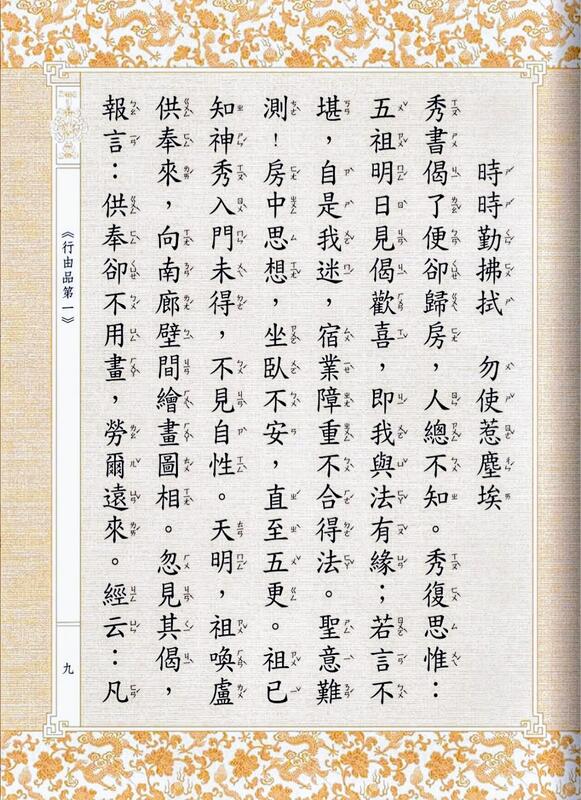 時時勤拂拭　勿使惹塵埃
秀書偈了便卻歸房，人總不知。秀復思惟：
五祖明日見偈歡喜，即我與法有緣；若言不
堪，自是我迷，宿業障重不合得法。聖意難
測！房中思想，坐臥不安，直至五更。祖已
知神秀入門未得，不見自性。天明，祖喚盧
供奉來，向南廊壁間繪畫圖相。忽見其偈，
報言：供奉卻不用畫，勞爾遠來。經云：凡
《行由品第一》
九